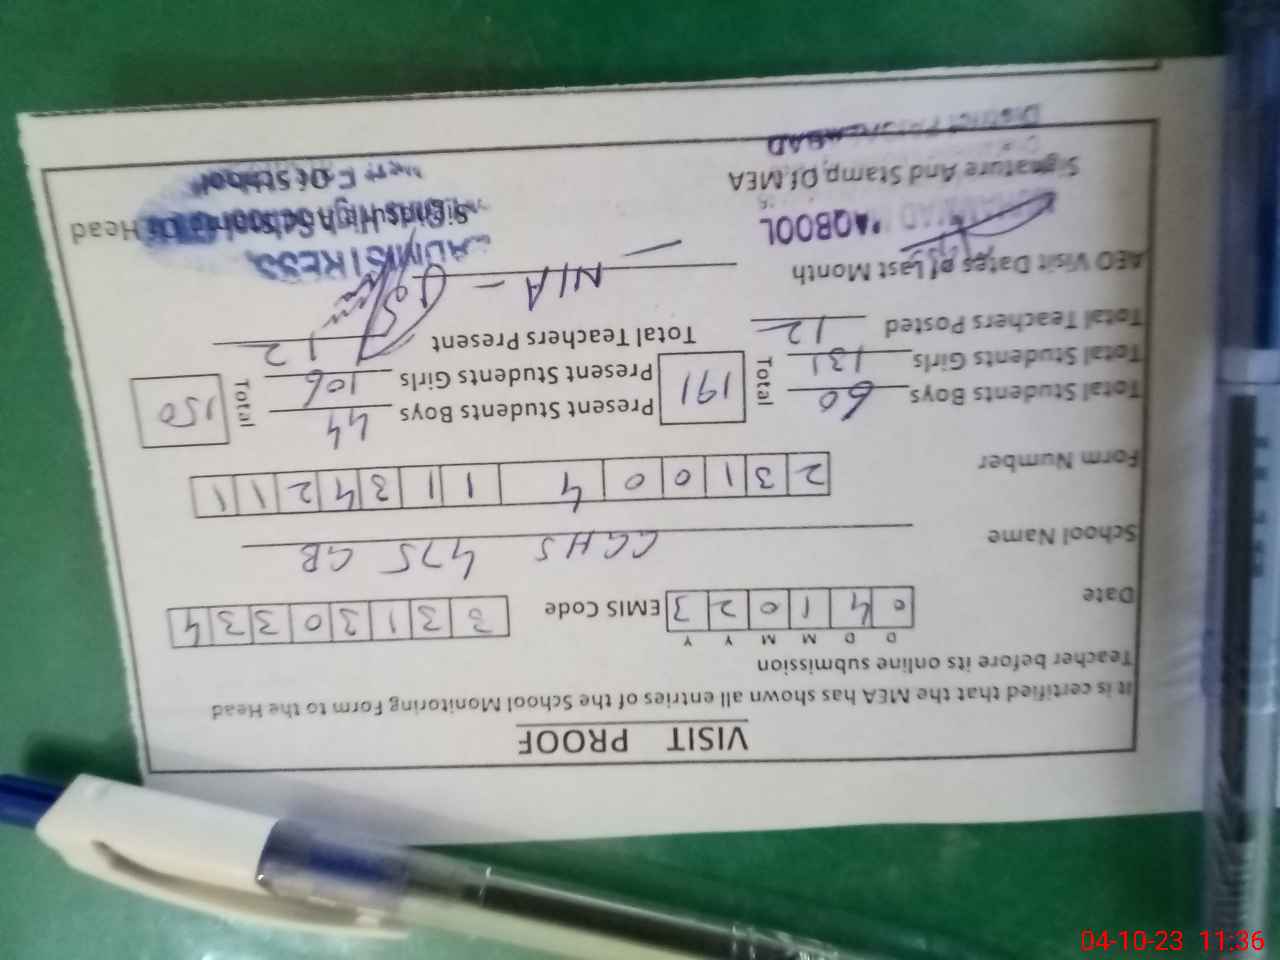 VISIT PROOF
It is certified that the MEA has shown all entries of the School Monitoring Form to the Head
Teacher before its online submission
D D M M Y Y
Date 0 4 1 0 2 3 EMIS Code 3 3 1 3 0 3 3 4
School Name GGHS 475 GB
Form Number 2 3 1 0 0 4 1 1 3 4 2 1 1
Total Students Boys 60 Total 191 Present Students Boys 44 Total 150
Total Students Girls 131 Present Students Girls 106
Total Teachers Posted 12 Total Teachers Present 12
AEO Visit Dates of Last Month — N/A —
Signature And Stamp Of MEA Head
04-10-23 11:36